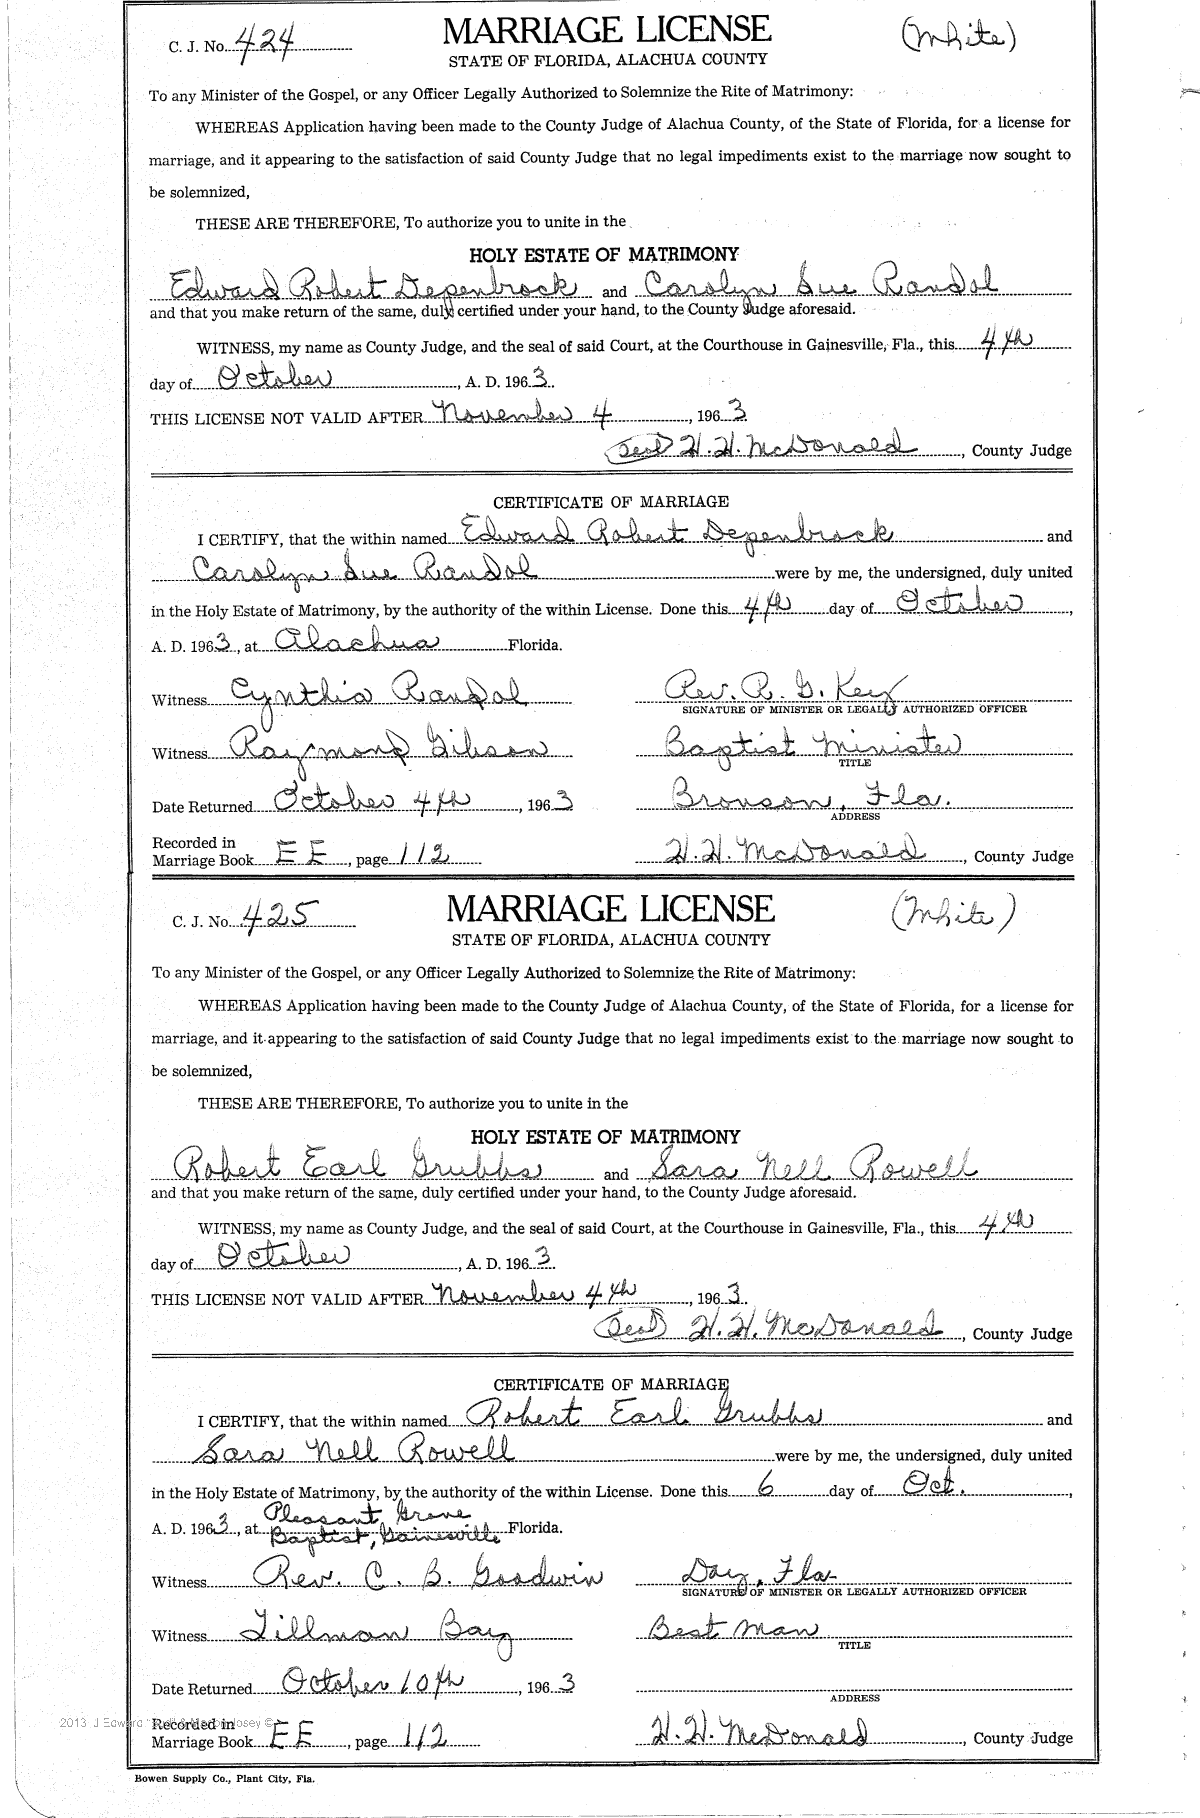 C. J. No. 424 MARRIAGE LICENSE (White)
STATE OF FLORIDA, ALACHUA COUNTY
To any Minister of the Gospel, or any Officer Legally Authorized to Solemnize the Rite of Matrimony:
WHEREAS Application having been made to the County Judge of Alachua County, of the State of Florida, for a license for
marriage, and it appearing to the satisfaction of said County Judge that no legal impediments exist to the marriage now sought to
be solemnized,
THESE ARE THEREFORE, To authorize you to unite in the
HOLY ESTATE OF MATRIMONY
Edward Robert Depenbrock and Carolyn Sue Randol
and that you make return of the same, duly certified under your hand, to the County Judge aforesaid.
WITNESS, my name as County Judge, and the seal of said Court, at the Courthouse in Gainesville, Fla., this 4th
day of October, A. D. 1963.
THIS LICENSE NOT VALID AFTER November 4, 1963
(Seal) H. H. McDonald, County Judge
CERTIFICATE OF MARRIAGE
I CERTIFY, that the within named Edward Robert Depenbrock and
Carolyn Sue Randol were by me, the undersigned, duly united
in the Holy Estate of Matrimony, by the authority of the within License. Done this 4th day of October,
A. D. 1963, at Alachua Florida.
Witness Cynthia Randol Rev. R. G. Key
SIGNATURE OF MINISTER OR LEGALLY AUTHORIZED OFFICER
Witness Raymond Gibson Baptist Minister
TITLE
Date Returned October 4th, 1963 Bronson, Fla.
ADDRESS
Recorded in
Marriage Book EE, page 112 H. H. McDonald, County Judge
C. J. No. 425 MARRIAGE LICENSE (White)
STATE OF FLORIDA, ALACHUA COUNTY
To any Minister of the Gospel, or any Officer Legally Authorized to Solemnize the Rite of Matrimony:
WHEREAS Application having been made to the County Judge of Alachua County, of the State of Florida, for a license for
marriage, and it appearing to the satisfaction of said County Judge that no legal impediments exist to the marriage now sought to
be solemnized,
THESE ARE THEREFORE, To authorize you to unite in the
HOLY ESTATE OF MATRIMONY
Robert Earl Grubbs and Sara Nell Rowell
and that you make return of the same, duly certified under your hand, to the County Judge aforesaid.
WITNESS, my name as County Judge, and the seal of said Court, at the Courthouse in Gainesville, Fla., this 4th
day of October, A. D. 1963.
THIS LICENSE NOT VALID AFTER November 4th, 1963.
(Seal) H. H. McDonald, County Judge
CERTIFICATE OF MARRIAGE
I CERTIFY, that the within named Robert Earl Grubbs and
Sara Nell Rowell were by me, the undersigned, duly united
in the Holy Estate of Matrimony, by the authority of the within License. Done this 6 day of Oct.,
Pleasant Grove
A. D. 1963, at Baptist, Gainesville Florida.
Witness Rev. C. B. Goodwin Day, Fla.
SIGNATURE OF MINISTER OR LEGALLY AUTHORIZED OFFICER
Witness Tillman Best Man
TITLE
Date Returned October 10th, 1963
ADDRESS
Recorded in
Marriage Book EE, page 112 H. H. McDonald, County Judge
Bowen Supply Co., Plant City, Fla.
2013 J Edward